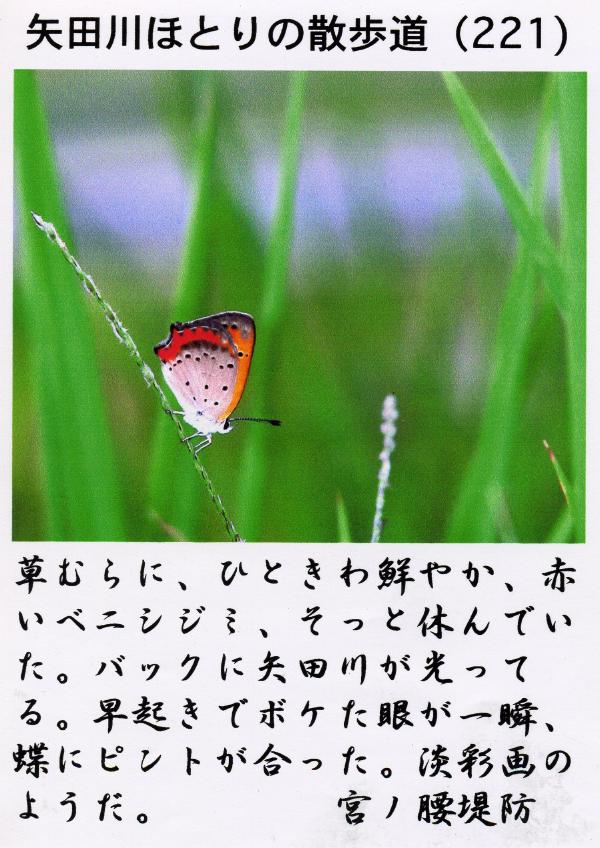 矢田川ほとりの散歩道（221）
草むらに、ひときわ鮮やか、赤
いベニシジミ、そっと休んでい
た。バックに矢田川が光って
る。早起きでボケた眼が一瞬、
蝶にピントが合った。淡彩画の
ようだ。　　　　宮ノ腰堤防